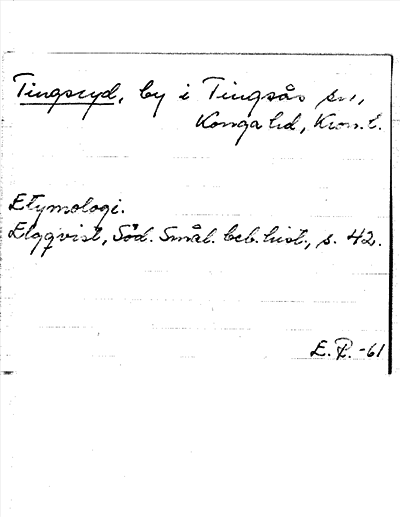 Tingsryd, by i Tingsås sn,
Konga hd, Kron. l.
Etymologi.
Elgqvist, Söd. Smål. beb. hist., s. 42.
E. P. -61